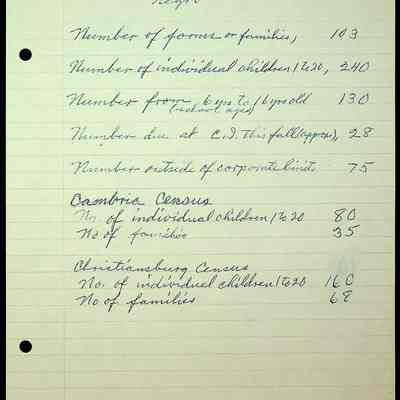 Negro
Number of forms or families, 103
Number of individual children 1 to 20, 240
Number from 6 yrs to 16 yrs old 130
(school age)
Number due at C.I. this fall (approx), 28
Number outside of corporate limits 75
Cambria Census
No. of individual children 1 to 20 80
No of families 35
Christiansburg Census
No. of individual children 1 to 20 160
No of families 68